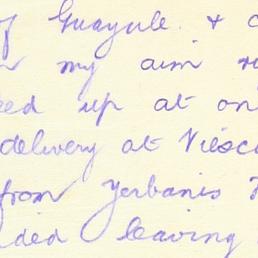 of Guayule. & c
my aim
ed up at on
delivery at Viesc
from Yerbanis
ded leaving